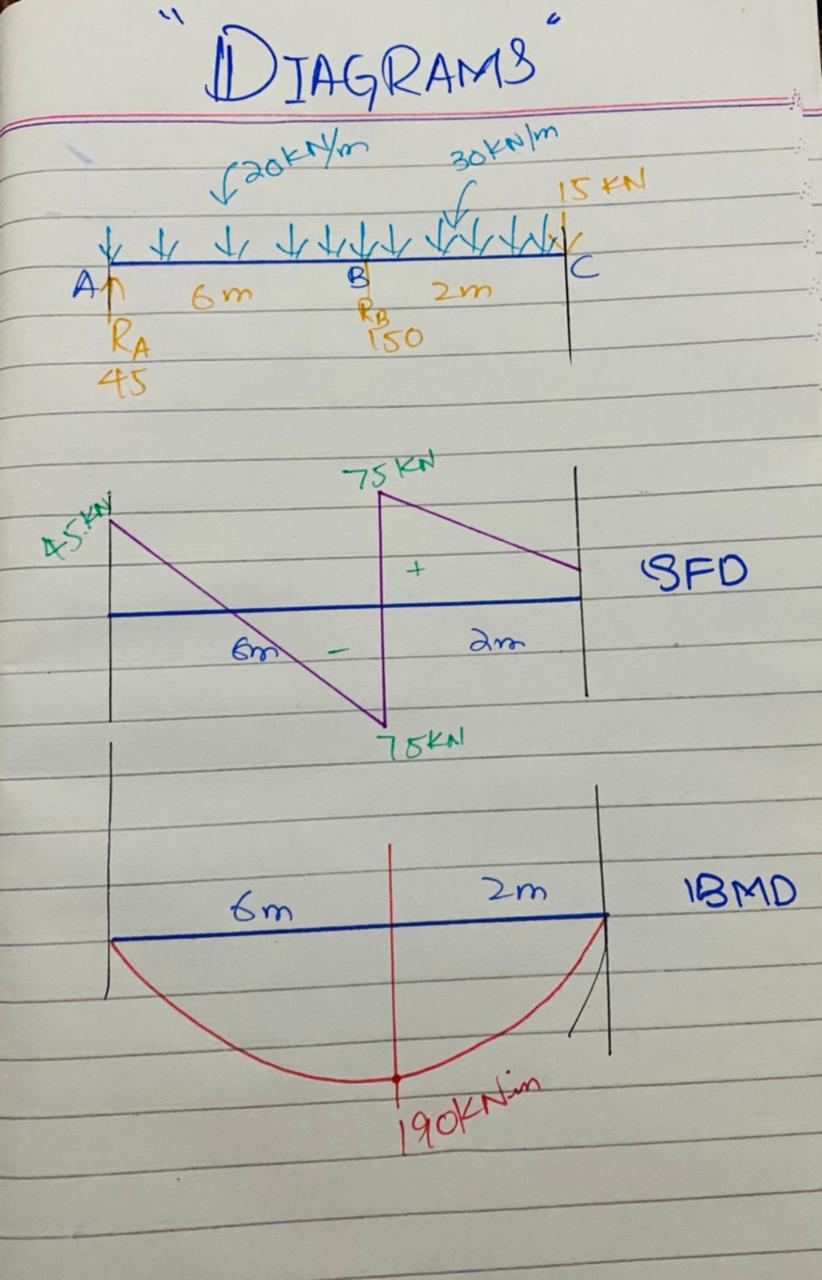 "DIAGRAMS"
20KN/m 30KN/m
15 KN
A 6m B 2m C
RA RB
45 150
75 KN
45 KN
+ SFD
6m - 2m
75KN
6m 2m BMD
190KNm